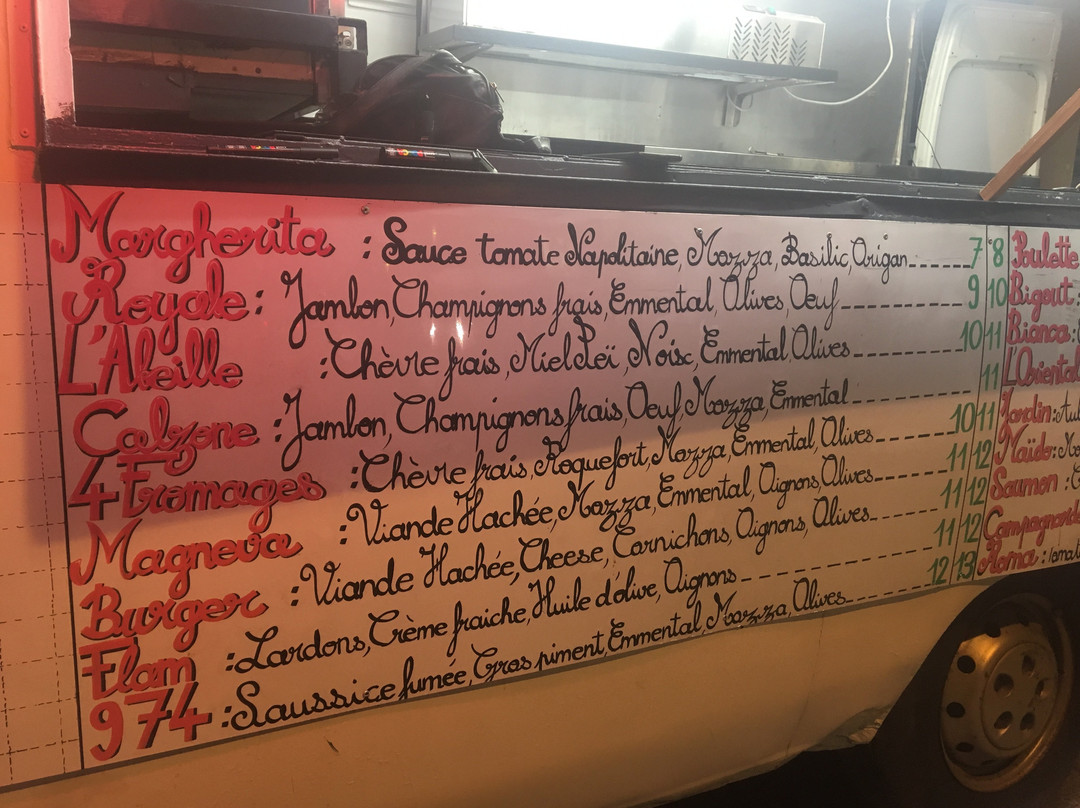 Margherita : Sauce tomate Napolitaine, Mozza, Basilic, Origan 7
Royale : Jambon, Champignons frais, Emmental, Olives, Oeuf 9
L'Abeille : Chèvre frais, Miel Peï, Noix, Emmental, Olives 10
Calzone : Jambon, Champignons frais, Oeuf, Mozza, Emmental
4 Fromages : Chèvre frais, Roquefort, Mozza, Emmental, Olives 10
Magneva : Viande Hachée, Mozza, Emmental, Oignons, Olives 11
Burger : Viande Hachée, Cheese, Cornichons, Oignons, Olives 11
Flam : Lardons, Crème fraiche, Huile d'olive, Oignons 11
974 : Saussice fumée, Gros piment, Emmental, Mozza, Olives 12
8 Poulette
10 Bigout :
11 Bianca :
11 L'Oriental
11 Jardin :
12 Maïdo :
12 Saumon :
12
13 Roma :